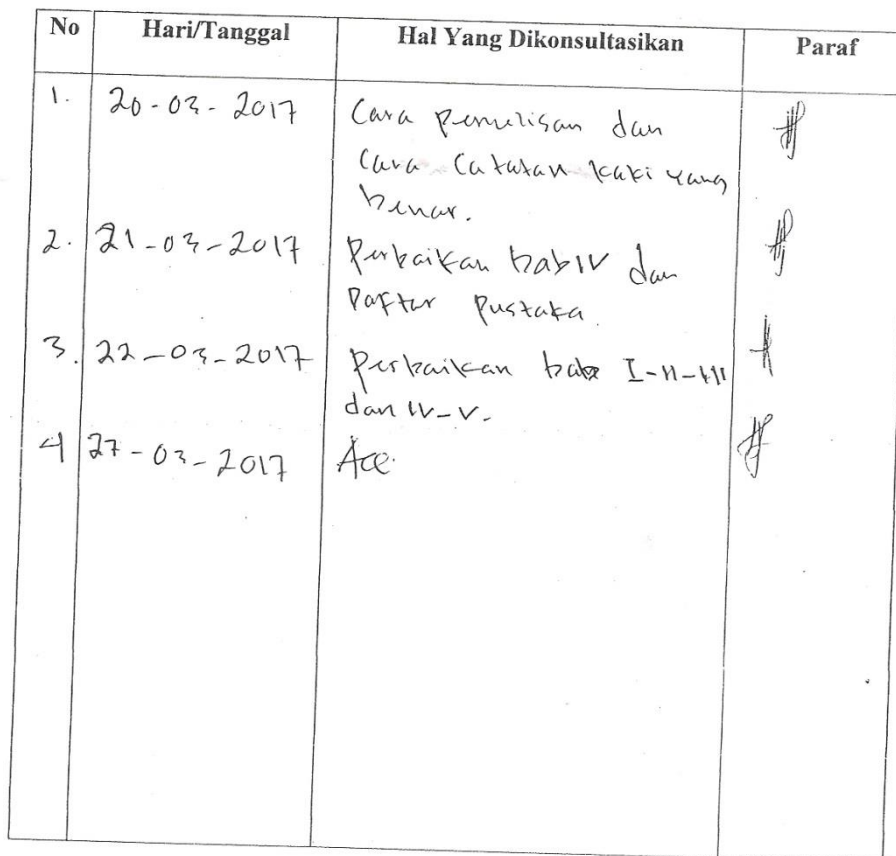 No Hari/Tanggal Hal Yang Dikonsultasikan Paraf
1. 20-03-2017 Cara penulisan dan
Cara Catatan kaki yang
benar.
2. 21-03-2017 Perbaikan bab IV dan
Daftar Pustaka.
3. 22-03-2017 Perbaikan bab I-II-III
dan IV-V.
4 27-03-2017 Acc.